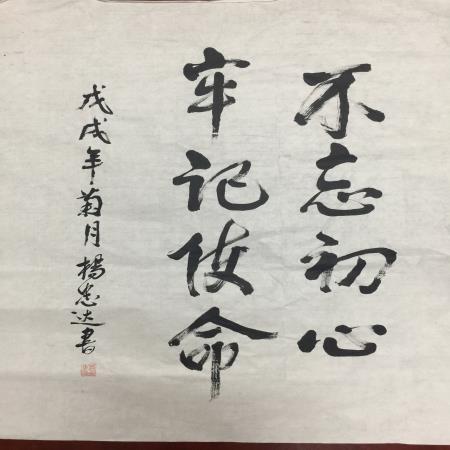 不忘初心
牢记使命
戊戌年菊月楊志达書